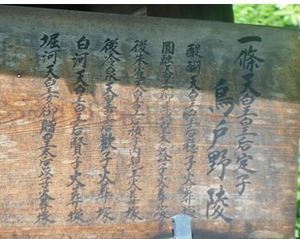 一條天皇皇后定子
鳥戸野陵
醍醐天皇皇后穏子火葬塚
圓融天皇御母贈皇太后詮子火葬塚
後朱雀天皇皇子妃贈皇太后嬉子火葬塚
後冷泉天皇皇后歡子火葬塚
白河天皇皇后賢子火葬塚
堀河天皇御贈皇太后苡子火葬塚